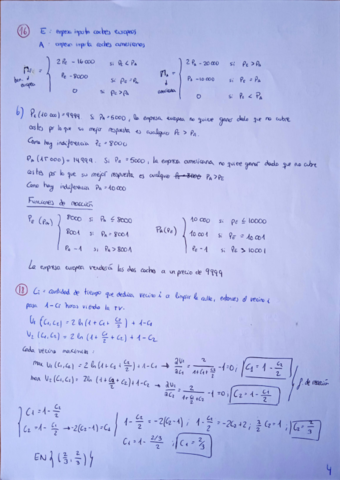 36 E: empresa importa coches europeos
A: empresa importa coches americanos
2PE - 16000 si PE < PA
PE - 8000 si PE = PA
0 si PE > PA
2PA - 20000 si PE > PA
PA - 10000 si PE = PA
0 si PE < PA
b) PE(10000) = 9999 si PA = 6000, la empresa europea no quiere ganar dado que no cubre
costes por lo que su mejor respuesta es cualquier PE > PA.
Como hay indiferencia PE = 8000
PA(15000) = 14999 si PE = 5000, la empresa americana no quiere ganar dado que no cubre
costes por lo que su mejor respuesta es cualquier PA > PE
Como hay indiferencia PA = 10000
Funciones de reacción
PE(PA) 8000 si PA ≤ 8000
8001 si PA = 8001
PA - 1 si PA > 8001
PA(PE) 10000 si PE ≤ 10000
10001 si PE = 10001
PE - 1 si PE > 10001
La empresa europea venderá los dos coches a un precio de 9999
Ci = cantidad de tiempo que dedica vecino i a limpiar la calle, entonces el vecino i
pasa 1 - Ci horas viendo la TV.
U1(C1,C2) = 2 ln(1 + C1 + C2/2) + 1 - C1
V2(C1,C2) = 2 ln(1 + C1/2 + C2) + 1 - C2
Cada vecino maximiza:
C1 = 1 - C2/2
C2 = 1 - C1/2
f. de reacción
C1 = 1 - C2/2
C2 = 1 - C1/2 → 2(C2 - 1) = C1
1 - C2/2 = -2(C2 - 1); 1 - C2/2 = -2C2 + 2; 3/2 C2 = 1; C2 = 2/3
C1 = 1 - 2/3/2; C1 = 2/3
EN { (2/3, 2/3) }
4